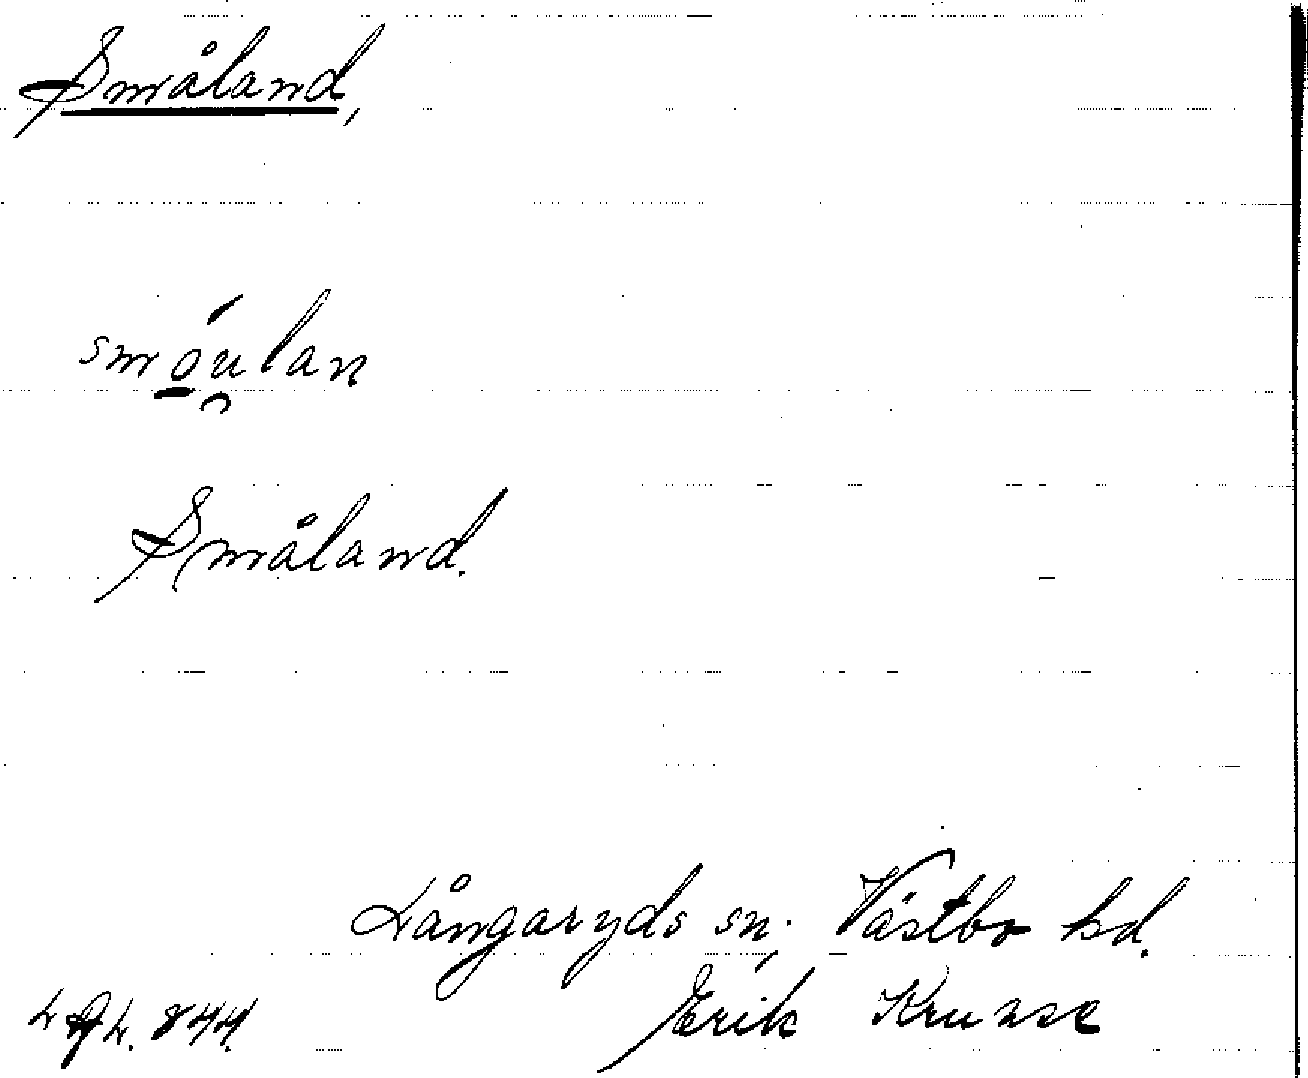 Småland,
smo̱ú̯lan
Småland.
Långaryds sn. Västbo hd.
Erik Kruase
844.